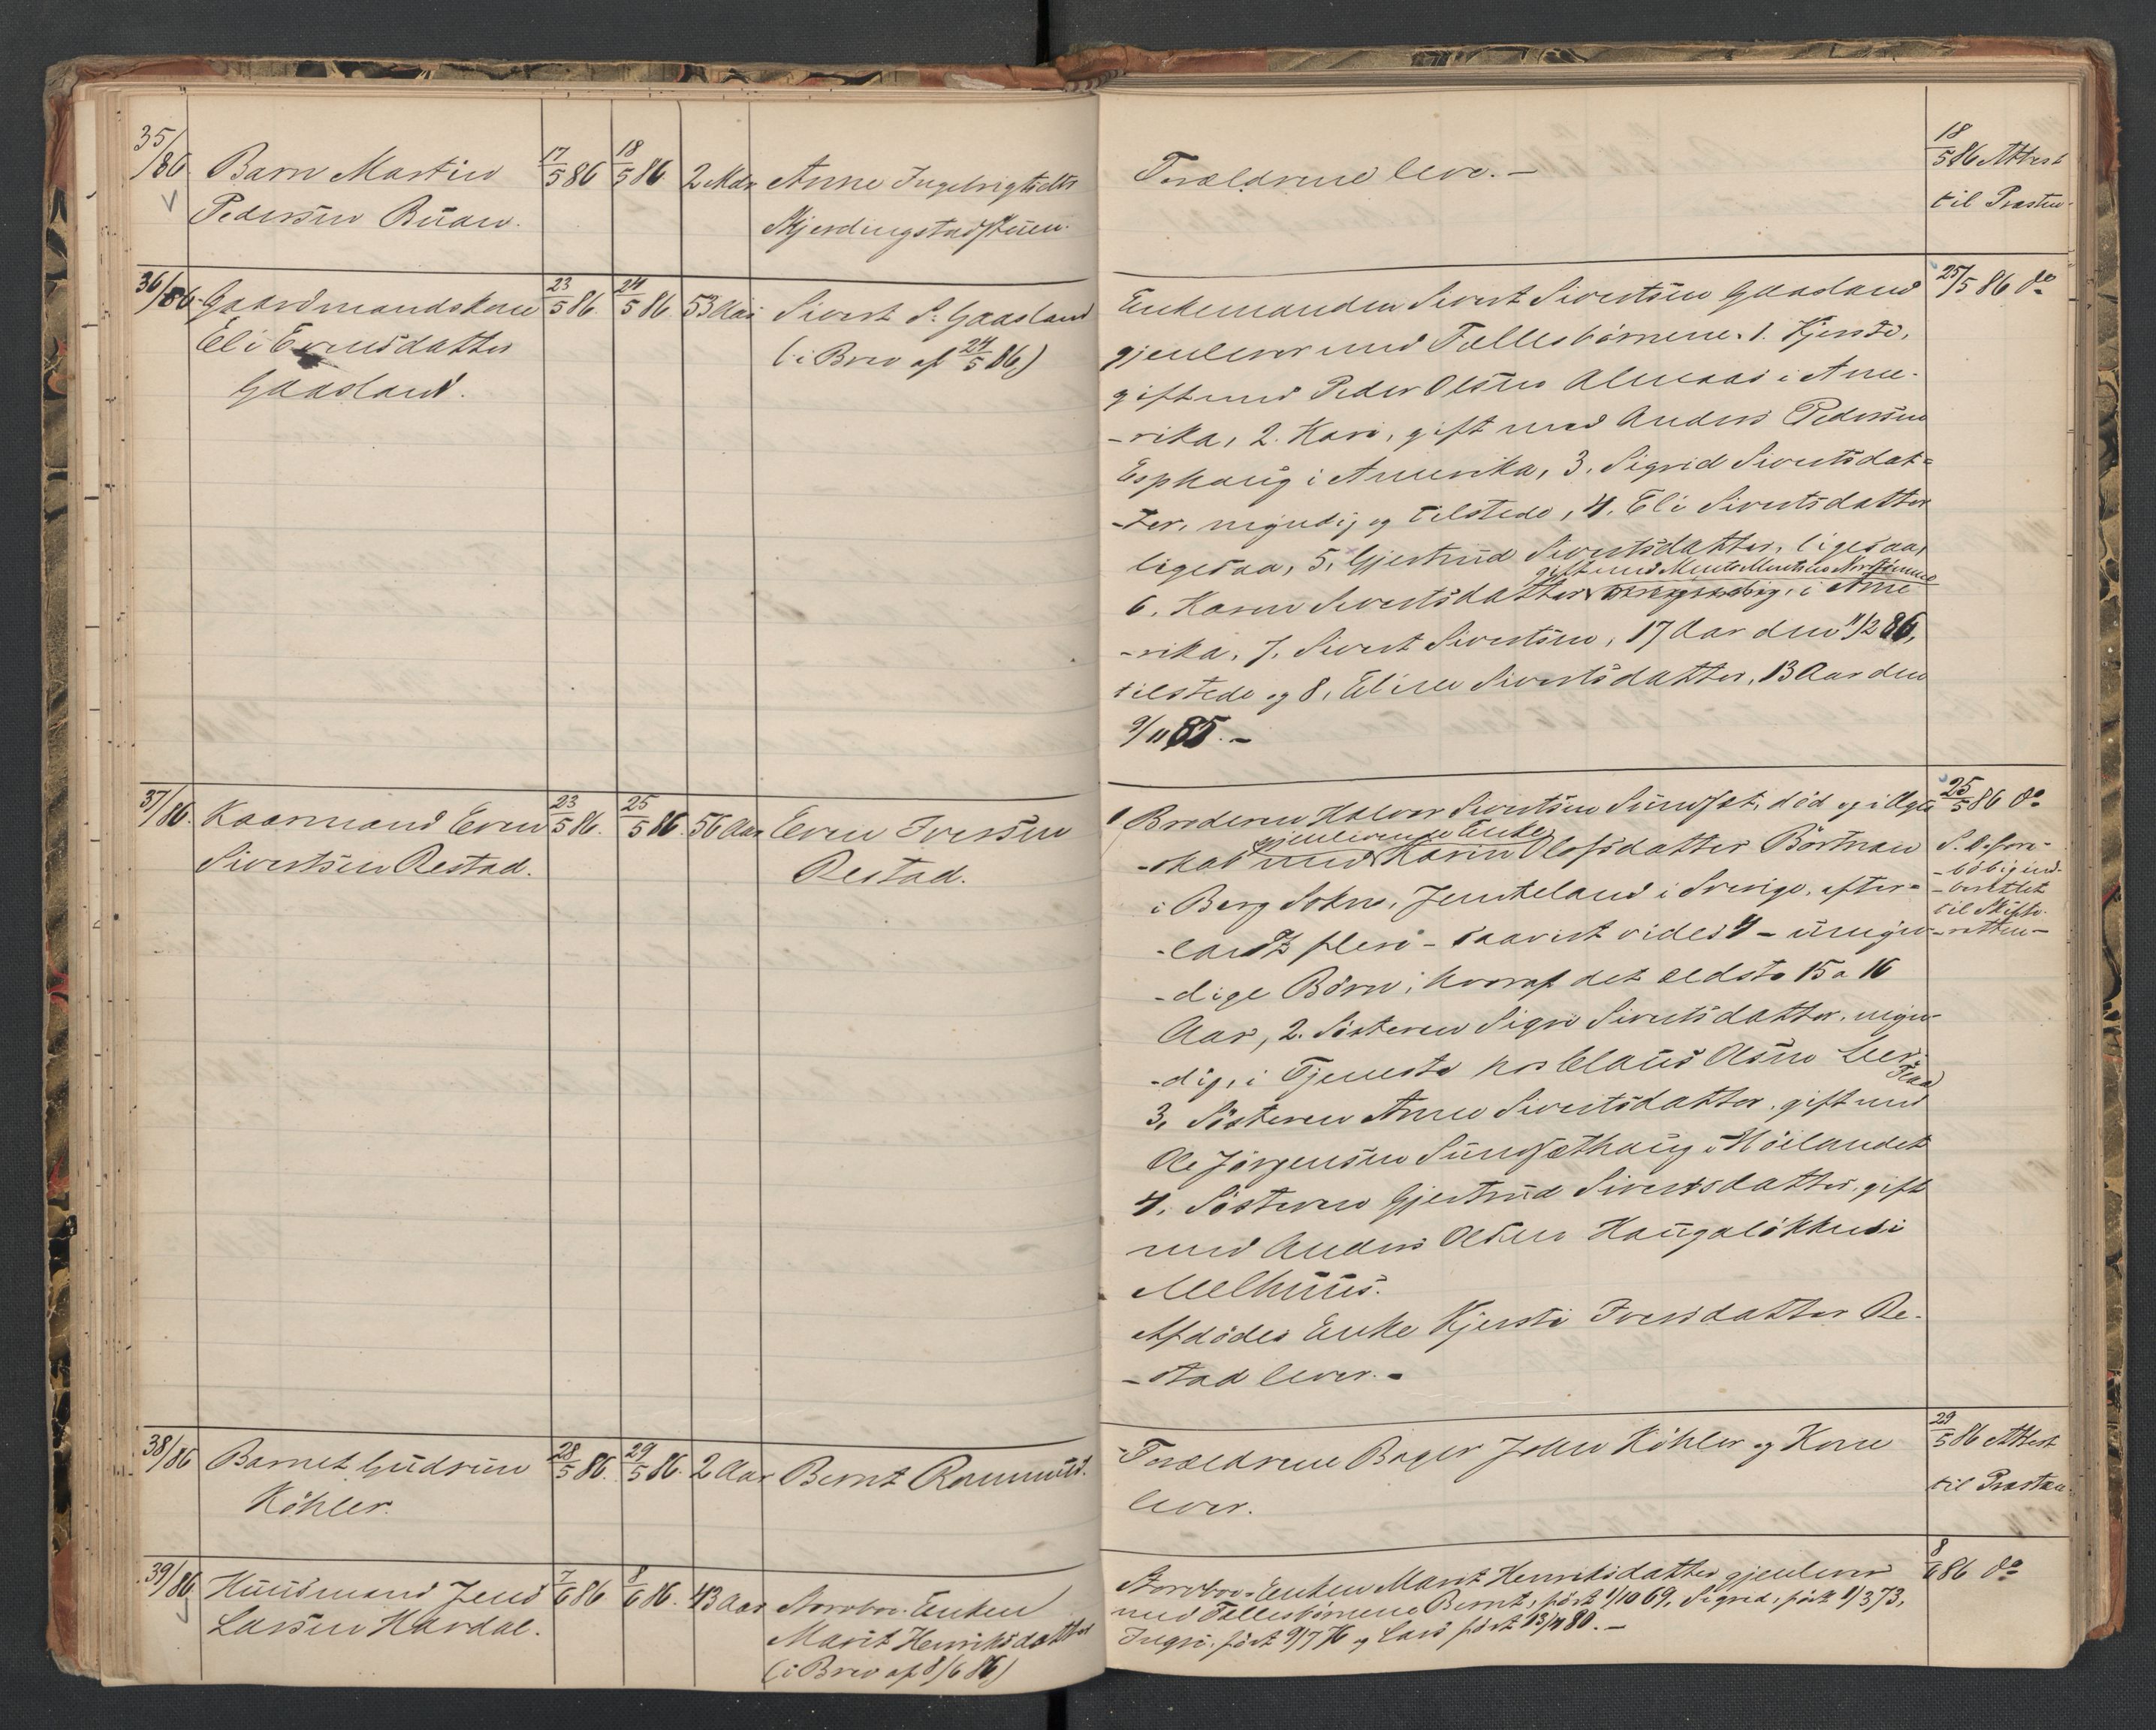 35/86 Barn Martin 17/5 86 18/5 86 2 Mdr Anne Ingebrigtsdtr
Pedersen Buan. Skjerdingstadstuen.
Forældrene lever. —
18/5 86 Attest
til Præsten.
36/86 Gaardmandskone 23/5 86. 24/5 86. 53 Aar Sivert S. Gaasland
Eli Evensdatter (i Brev af 24/5 86)
Gaasland.
Enkemanden Sivert Sivertsen Gaasland 25/5 86 do
gjenlever med Fællesbørnene. 1. Kjersti,
gift med Peder Olsen Almaas i Ame-
-rika, 2. Kari, gift med Anders Pedersen
Esphaug i Amerika, 3. Sigrid Sivertsdat=
-ter, myndig og tilstede, 4. Eli Sivertsdatter
ligesaa, 5. Gjertrud Sivertsdatter, ligesaa,
gift med
6. Karen Sivertsdatter i Ame-
-rika, 7. Sivert Sivertsen, 17 Aar den 11/2 86,
tilstede og 8. Eline Sivertsdatter, 13 Aar den
9/11 85. —
37/86. Kaarmand Even 23/5 86. 25/5 86. 56 Aar Even Iversen
Sivertsen Restad. Restad.
1 Broderen Halvor Sivertsen Sundset, død og i Ægte 25/5 86 do
gjenlevende Enke
-skab med Karin Olofsdatter Börtnan
i Berg Sokn, Jemteland i Sverige, efter=
-ladt flere - saavidt vides 4 - umyn-
-dige Børn, hvoraf det ældste 15 a 16
Aar, 2. Søsteren Sigri Sivertsdatter, myn-
-dig, i Tjeneste hos Claus Olsen Leer,
3. Søsteren Anne Sivertsdatter, gift med
Ole Jørgensen Sundsethaug i Høilandet
4. Søsteren Gjertrud Sivertsdatter, gift
med Anders Olsen Haugaløkken i
Melhuus.
Afdødes Enke Kjersti Iversdatter Re-
-stad lever. —
S. D. fore-
-løbig ind-
-berettet
til Skifte-
-retten —
38/86 Barnet Gudrun 28/5 86. 29/5 86. 2 Aar Bernt Rammud.
Köhler.
Forældrene Bager John Köhler og Kone
lever.
29/5 86 Attest
til Præsten.
39/86 Huusmand Jens 7/6 86 8/6 86. 43 Aar Storvbr. Enken
Larsen Hardal. Marit Henriksdatter
(i Brev af 8/6 86)
Enken Marit Henriksdatter gjenlever 8/6 86 do
med Fællesbørnene Bernt, født 1/10 69, Sigrid, født 1/3 73,
Ingri, født 9/7 76 og Lars født 13/4 80. —